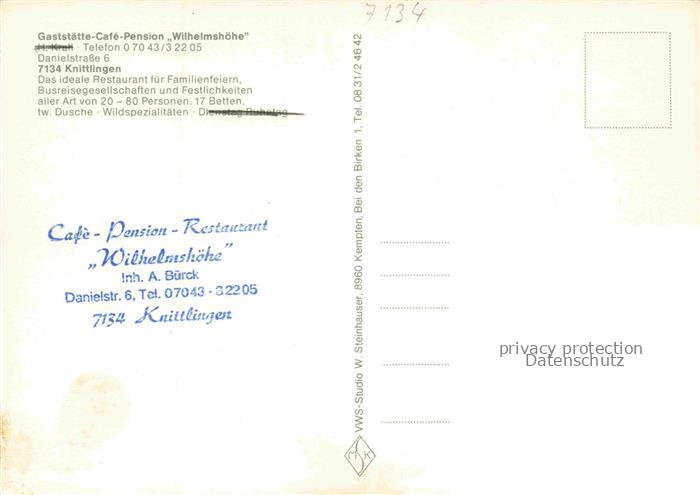 7134
Gaststätte-Café-Pension „Wilhelmshöhe"
H. Kraft · Telefon 0 70 43/3 22 05
Danielstraße 6
7134 Knittlingen
Das ideale Restaurant für Familienfeiern,
Busreisegesellschaften und Festlichkeiten
aller Art von 20 – 80 Personen. 17 Betten,
tw. Dusche · Wildspezialitäten · Dienstag Ruhetag
Cafè - Pension - Restaurant
„Wilhelmshöhe"
Inh. A. Bürck
Danielstr. 6, Tel. 07043 - 32205
7134 Knittlingen
VWS-Studio W. Steinhauser, 8960 Kempten, Bei den Birken 1, Tel. 08 31/2 46 42
M S K
privacy protection
Datenschutz